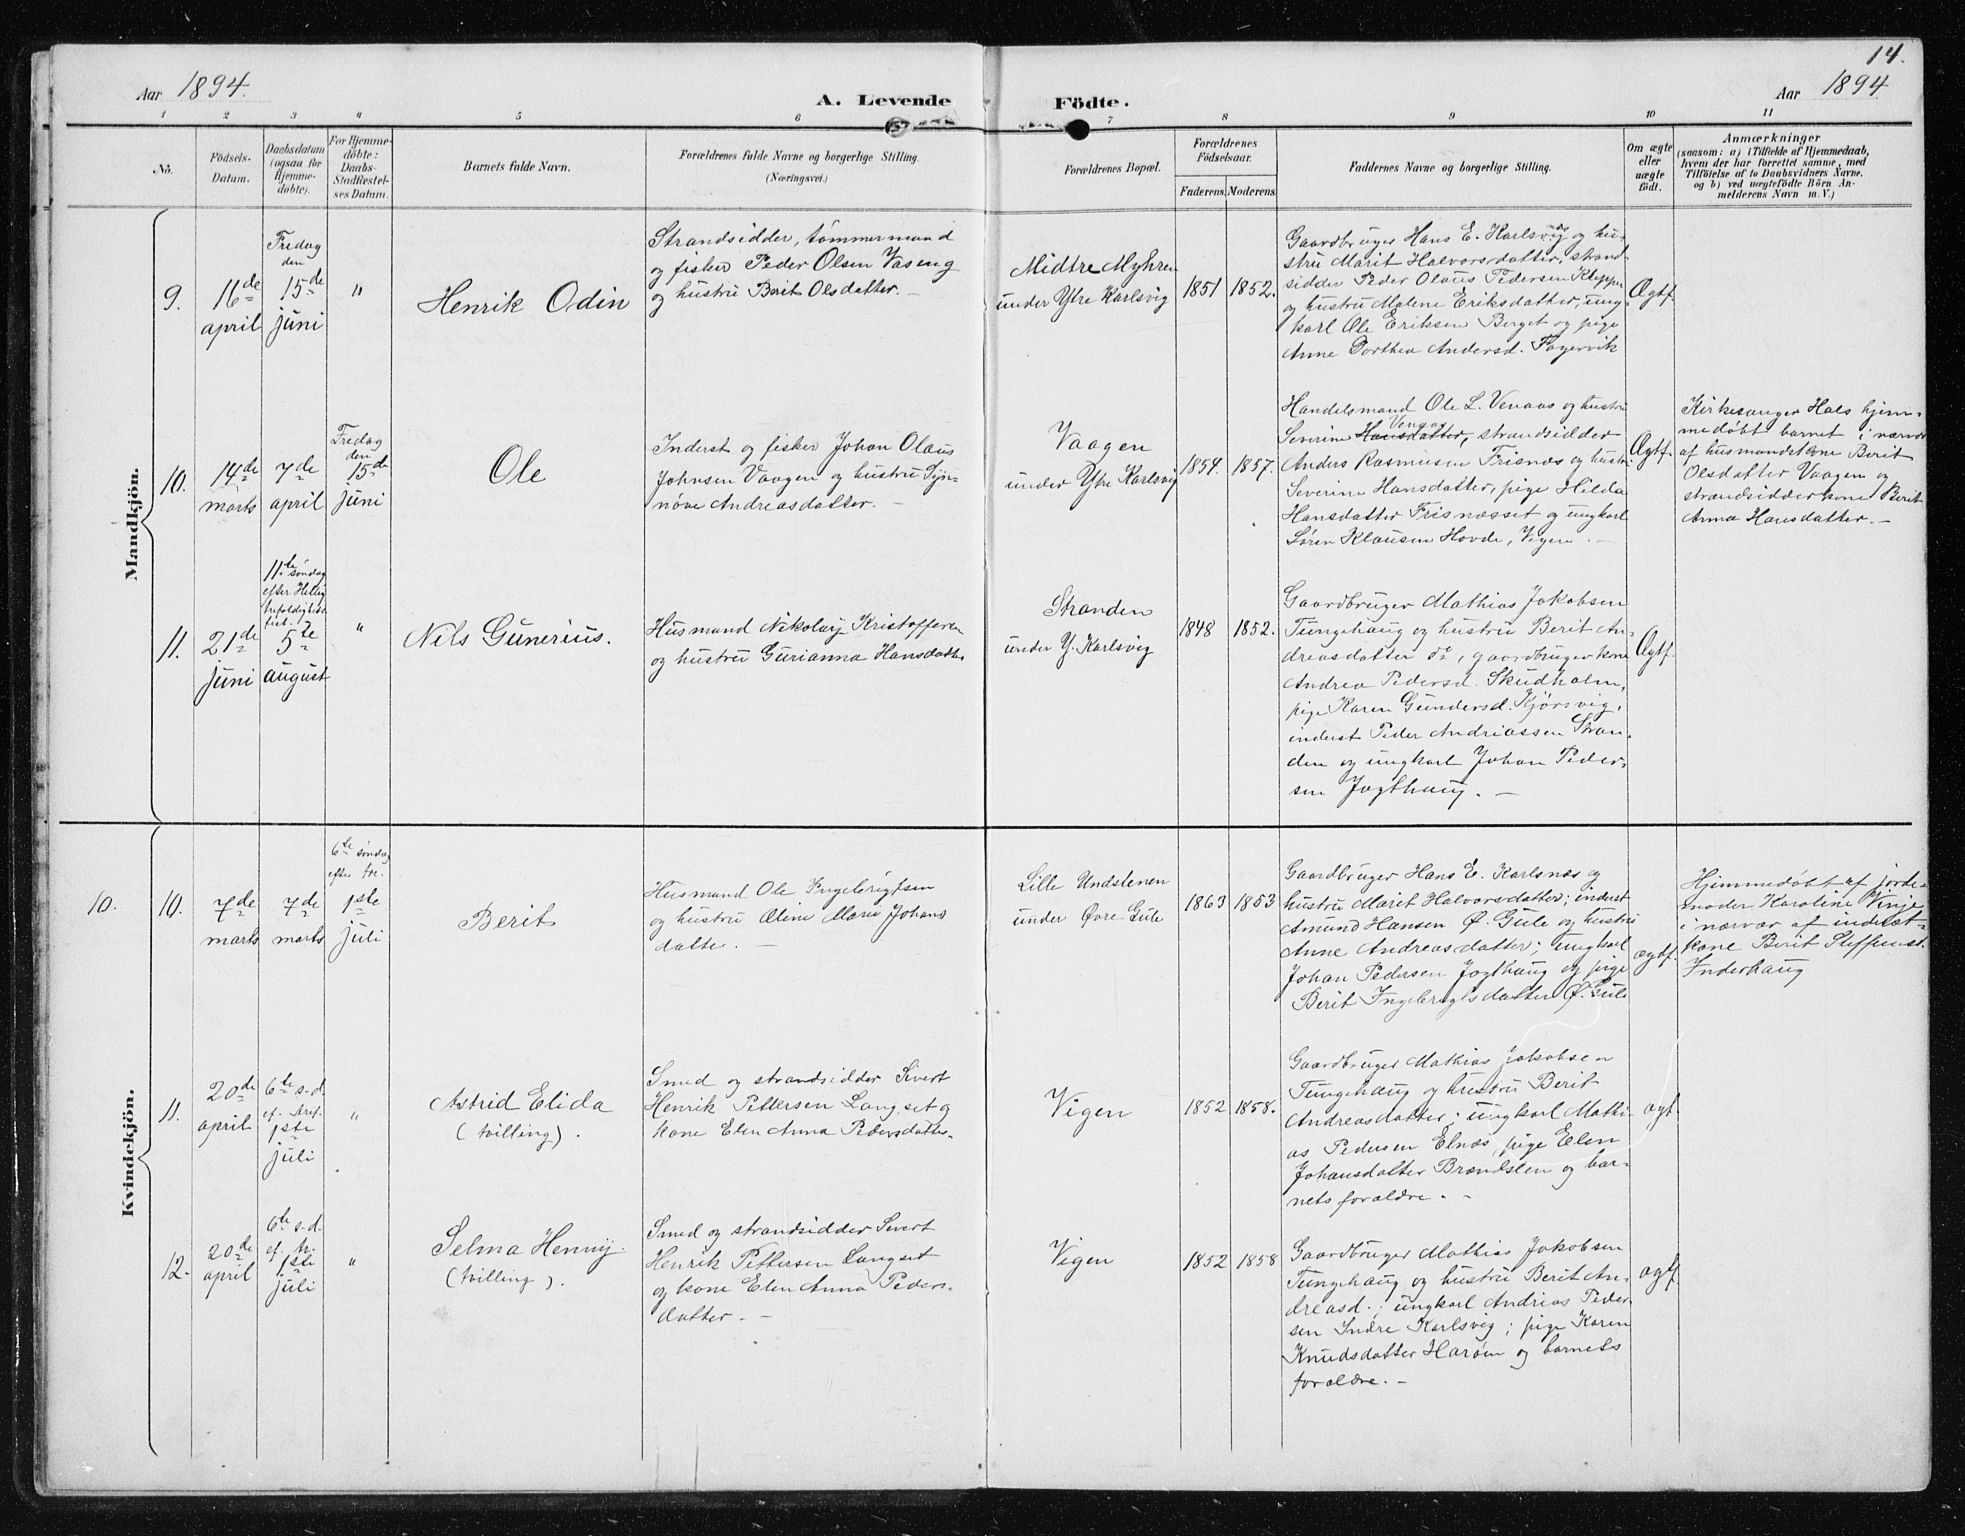 14.
Aar 1894.
A. Levende Födte.
Aar 1894
1 2 3 4 5 6 7 8 9 10 11
No.
Födsels-
Datum.
Daabsdatum
(ogsaa for
Hjemme-
döbte).
For Hjemme-
döbte:
Daabs-
Stadfæstel-
ses Datum.
Barnets fulde Navn.
Forældrenes fulde Navne og borgerlige Stilling.
(Næringsvei.)
Forældrenes Bopæl.
Forældrenes
Födselsaar.
Faderens. Moderens.
Faddernes Navne og borgerlige Stilling.
Om ægte
eller
uægte
født.
Anmærkninger
(saasom: a) i Tilfælde af Hjemmedaab,
hvem der har forrettet samme, med
Tilföielse af to Daabsvidners Navne.
og b) ved uægtefödte Börn An-
melderens Navn m. V.)
Mandkjön.
9.
16de
april
Fredag
den
15de
juni
"
Henrik Odin
Strandsidder, tömmermand
og fisker Peder Olsen Vaseng
og hustru Berit Olsdatter. -
Midtre Myhren
under Ytre Karlsvig
1851
1852.
Gaardbruger Hans E. Karlsvig og hu-
stru Marit Halvorsdatter, strand-
sidder Peder Olaus Pedersen Kleppe
og hustru Malene Eriksdatter, ung-
karl Ole Eriksen Berget og pige
Anne Dorthea Andersd. Fagervik
Ægtf.
10.
14de
marts
7de
april
Fredag
den
15de
juni
Ole
Inderst og fisker Johan Olaus
Johnsen Vaagen og hustru Syn-
növe Andreasdatter. -
Vaagen
under Ytre Karlsvig
1854.
1857.
Handelsmand Ole L. Venaas og hustru
Venaas
Severine Hansdatter, strandsidder
Anders Rasmusen Frisnæs og hustru
Severine Hansdatter, pige Hilda
Hansdatter Frisnæsset og ungkarl
Sören Klausen Hovde, Vigen. -
Ægtf.
Kirkesanger Hals hjem-
medöbt barnet i nærvær
af husmandskone Berit
Olsdatter Vaagen og
strandsidderkone Berit
Anna Hansdatter. -
11.
21de
juni
11te söndag
efter Hellig
trefoldigheds
fest.
5te
august
"
Nils Gunerius.
Husmand Nikolaij Kristoffersen
og hustru Gurianna Hansdatter
Stranden
under Y. Karlsvig
1848
1852.
Gaardbruger Mathias Jakobsen
Tungehaug og hustru Berit An-
dreasdatter do, gaardbrugerkone
Andrea Pedersd. Skudholm,
pige Karen Gundersd. Kjörsvig,
inderst Peder Andriassen Stran-
den og ungkarl Johan Peder-
sen Jogthaug. -
Ægtf.
Kvindekjön.
10.
10.
7de
marts
7de
marts
6te söndag
efter tre.
1ste
juli
Berit
Husmand Ole Ingebrigtsen
og hustru Eline Marie Johans
datter. -
Lille Undstenen
under Övre Gule
1863
1853
Gaardbruger Hans E. Karlsnæs og
hustru Marit Halvorsdatter; inderst
Amund Hansen Ö. Gule og hustru
Anne Andreasdatter; ungkarl
Johan Pedersen Jogthaug og pige
Berit Ingebrigtsdatter Ö. Gule
ægtf.
Hjemmedöbt af jorde-
moder Karoline Vinje
i nærvær af inderst-
kone Berit Steffensd.
Inderhaug
11.
20de
april
6te s.d.
ef. tref.
1ste
juli
"
Astrid Elida
(tvilling).
Smed og strandsidder Sivert
Henrik Pettersen Langset og
kone Elen Anna Pedersdatter-
Vigen
1852
1858.
Gaardbruger Mathias Jakobsen
Tungehaug og hustru Berit
Andreasdatter; ungkarl Mathi-
as Pedersen Elnæs, pige Elen
Johansdatter Brandsten og bar-
nets forældre. -
ægt.
12.
20de
april
6te s.d.
ef. tr.
1ste
juli
"
Selma Henny.
(tvilling).
Smed og strandsidder Sivert
Henrik Pettersen Langset
og kone Elen Anna Peders-
datter. -
Vigen
1852
1858
Gaardbruger Mathias Jakobsen
Tungehaug og hustru Berit An-
dreasd.; ungkarl Andrias Peder-
sen Indre Karlsvig; pige Karen
Knudsdatter Haröen og barnets
forældre. -
ægtf.